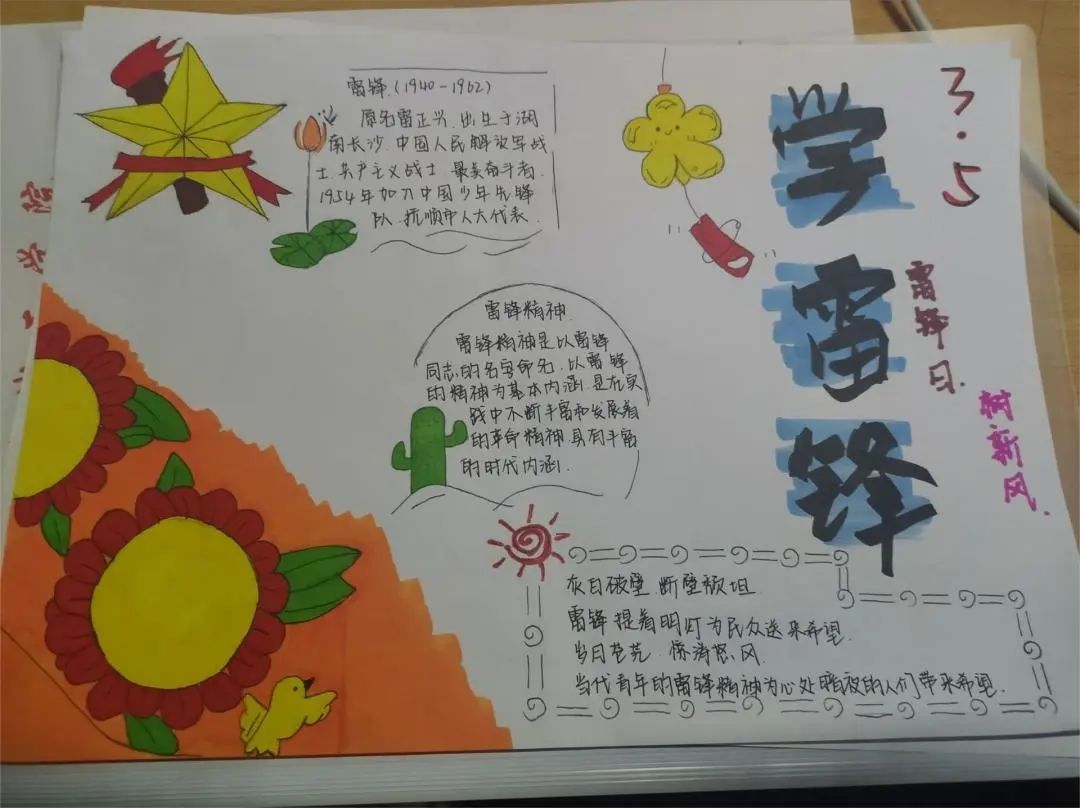 雷锋.(1940-1962)
原名雷正兴.出生于湖
南长沙.中国人民解放军战
士.共产主义战士.最美奋斗者.
1954年加入中国少年先锋
队.抚顺市人大代表.
3.5
学雷锋
雷锋日.
树新风.
雷锋精神.
雷锋精神是以雷锋
同志的名字命名.以雷锋
的精神为基本内涵.是在实
践中不断丰富和发展着
的革命精神.具有丰富
的时代内涵.
灰目破壁.断壁颓坦.
雷锋提着明灯为民众送来希望.
当日苍茫.惊涛怒风.
当代青年的雷锋精神为心处暗夜的人们带来希望.